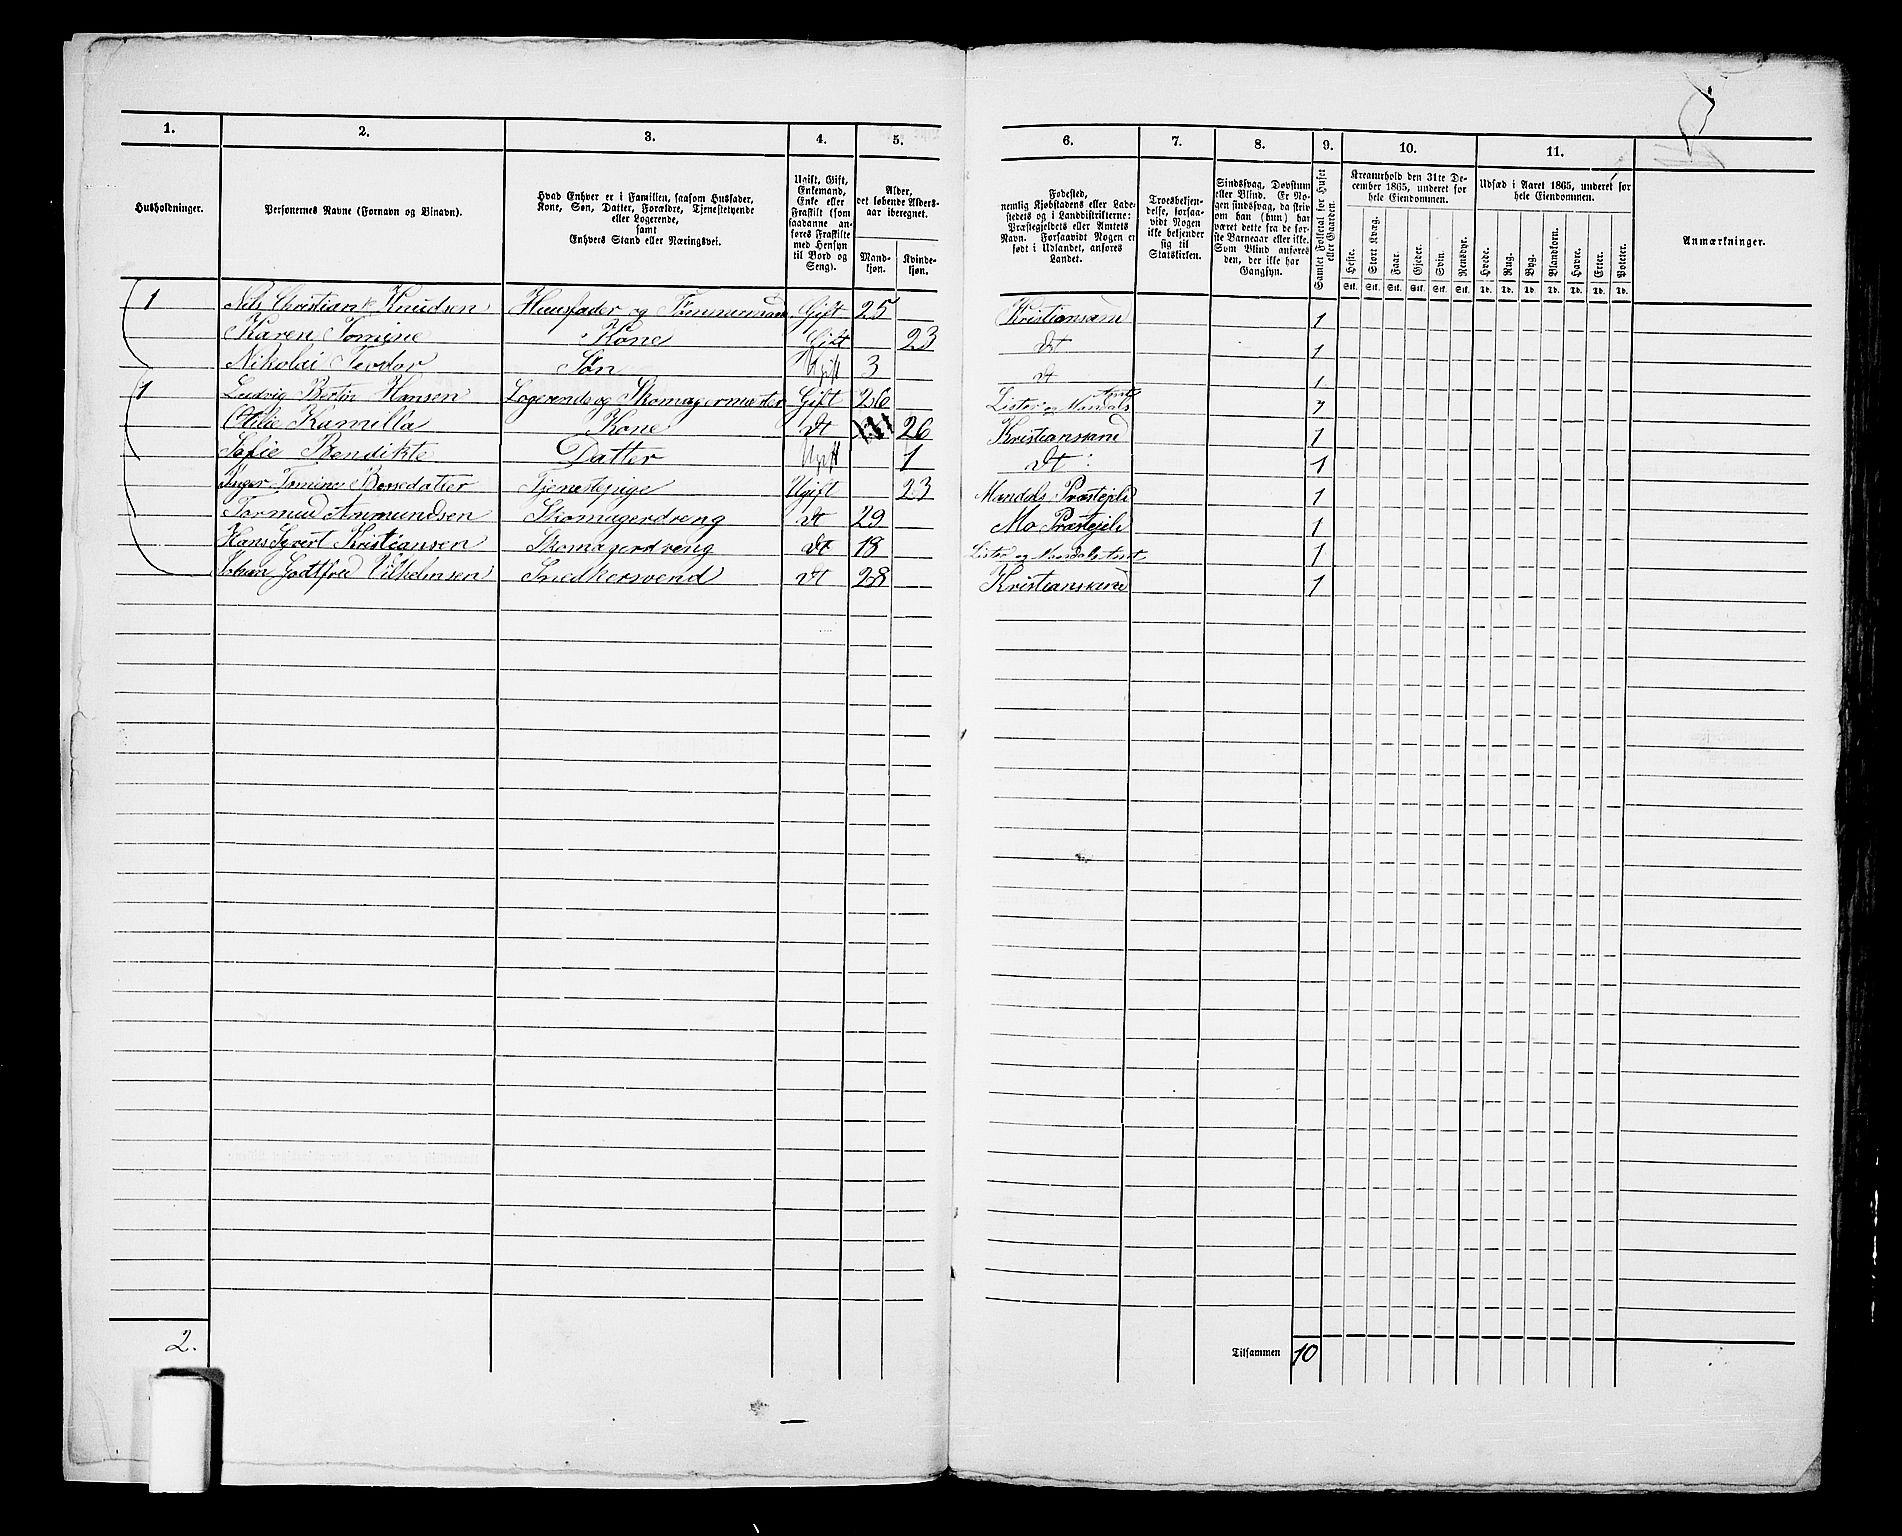 1. 2. 3. 4. 5. 6. 7. 8. 9. 10. 11.
Husholdninger.
Personernes Navne (Fornavn og Binavn).
Hvad Enhver er i Familien, saasom Husfader,
Kone, Søn, Datter, Forældre, Tjenestetyende
eller Logerende,
samt
Enhvers Stand eller Næringsvei.
Ugift, Gift,
Enkemand,
Enke eller
Fraskilt (som
saadanne an-
føres Fraskilte
med Hensyn
til Bord og
Seng).
Alder,
det løbende Alders-
aar iberegnet.
Mand-
kjøn.
Kvinde-
kjøn.
Fødested,
nemlig Kjøbstadens eller Lade-
stedets og i Landdistrikterne:
Præstegjeldets eller Amtets
Navn. Forsaavidt Nogen er
født i Udlandet, anføres
Landet.
Troesbekjen-
delse, forsaa-
vidt Nogen
ikke bekjender
sig til
Statskirken.
Sindssvag, Døvstum
eller Blind. Er No-
gen sindssvag, da skriv
om han (hun) har
været dette fra de før-
ste Barneaar eller ikke.
Som Blind anføres
den, der ikke har
Gangsyn.
Samlet Folketal for Huset
eller Gaarden.
Kreaturhold den 31te De-
cember 1865, underet for
hele Eiendommen.
Heste. Stort Kvæg. Faar. Gjeder. Svin. Rensdyr.
Stk. Stk. Stk. Stk. Stk. Stk.
Udsæd i Aaret 1865, underet for
hele Eiendommen.
Hvede. Rug. Byg. Blandkorn. Havre. Erter. Poteter.
Td. Td. Td. Td. Td. Td. Td.
Anmærkninger.
1 Nils Christian Knudsen Huusfader og Tømmermand Gift 25 Kristiansand 1
Karen Tomine Kone Gift 23 dt 1
Nikolai Teodor Søn Ugift 3 dt 1
1 Ludvig Bertin Hansen Logerende og Skomagermester Gift 26 Lister og Mandals Amt 1
Otilie Kamilla Kone dt 26 Kristiansand 1
Sofie Bendikte Datter Ugift 1 dt 1
Inger Tomine Bossedatter Tjenestepige Ugift 23 Mandals Præstejeld 1
Tormud Anmundsen Skomagerdreng dt 29 Mo Præstejeld 1
Hans Syvert Kristiansen Skomagerdreng dt 18 Lister og Mandals Amt 1
Johan Godtfred Vilhelmsen Snedkersvend dt 28 Kristiansand 1
2. Tilsammen 10